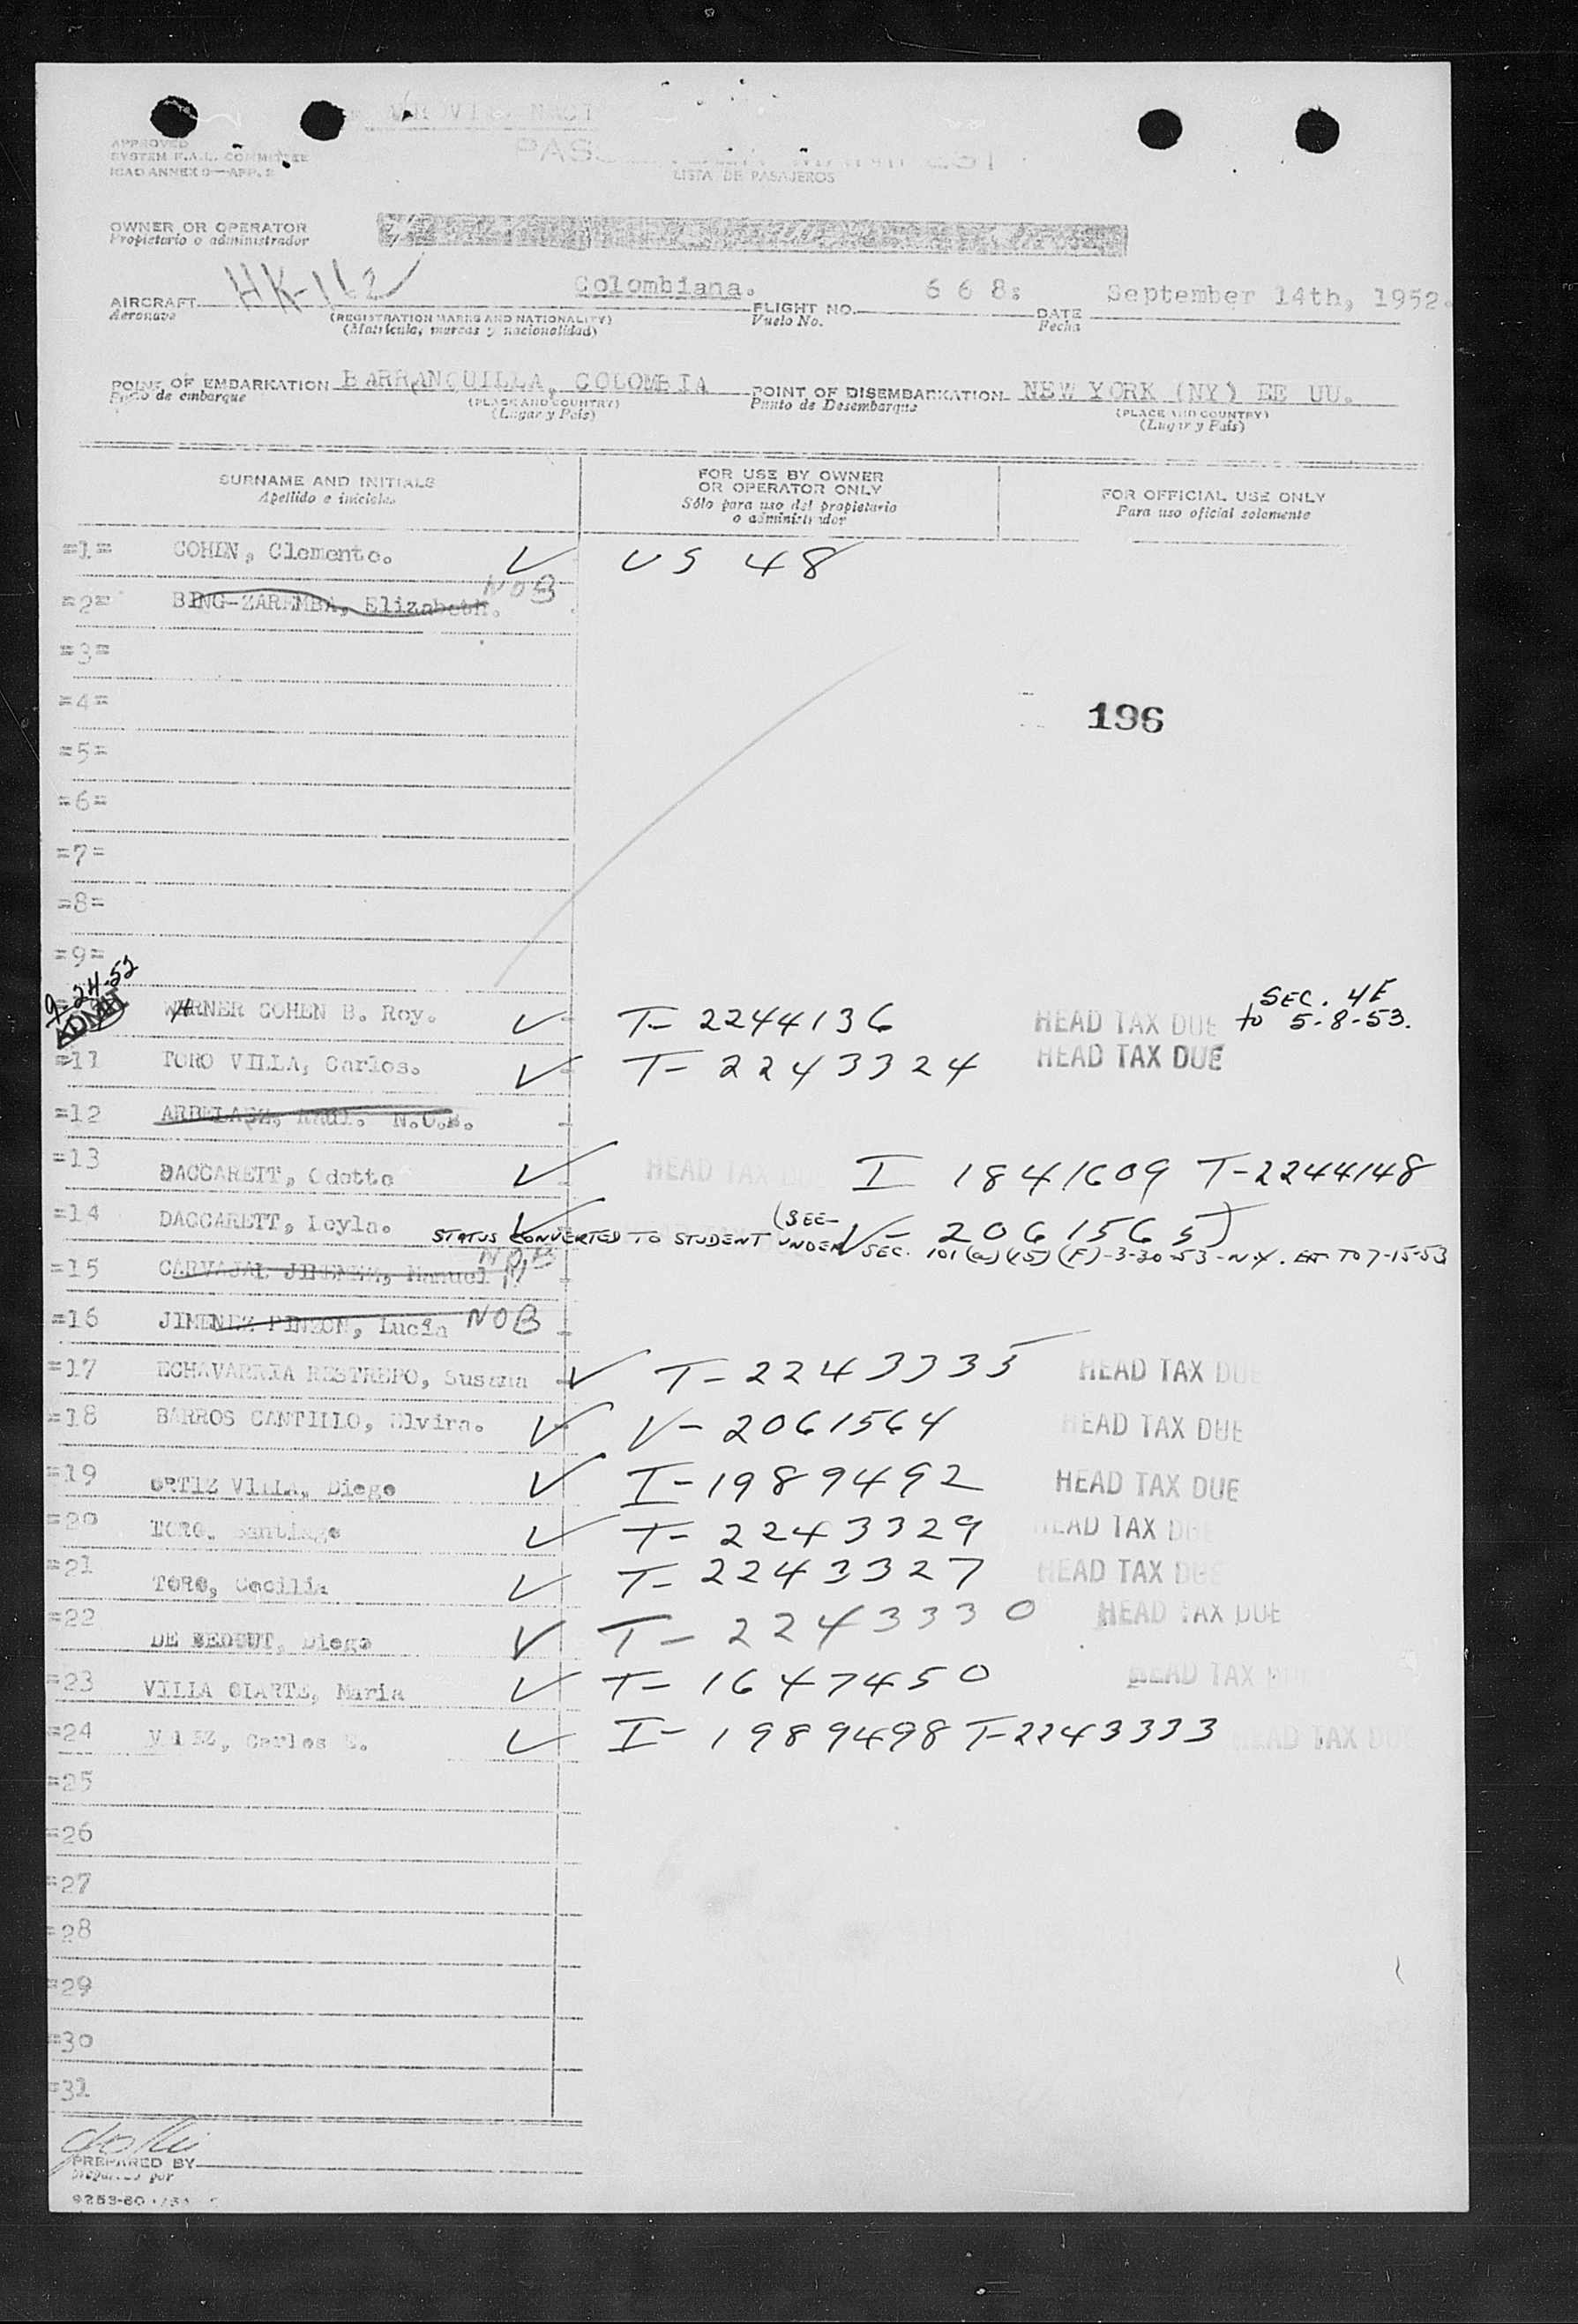 APPROVED
SYSTEM F.A.L. COMMITTEE
ICAO ANNEX 9—APP. 2
LISTA DE PASAJEROS
OWNER OR OPERATOR
Propietario o administrador
AIRCRAFT HK-162 Colombiana. FLIGHT NO. 668: DATE September 14th, 1952.
Aeronave (REGISTRATION MARKS AND NATIONALITY) Vuelo No. Fecha
(Matrícula, marcas y nacionalidad)
POINT OF EMBARKATION BARRANQUILLA, COLOMBIA POINT OF DISEMBARKATION NEW YORK (NY) EE UU.
Punto de embarque (PLACE AND COUNTRY) Punto de Desembarque (PLACE AND COUNTRY)
(Lugar y País) (Lugar y País)
SURNAME AND INITIALS FOR USE BY OWNER OR OPERATOR ONLY FOR OFFICIAL USE ONLY
Apellido e iniciales Sólo para uso del propietario o administrador Para uso oficial solamente
=1= COHEN, Clemente. ✓ US 48
=2= BING-ZAREMBA, Elizabeth. NOB
=3=
=4=
196
=5=
=6=
=7=
=8=
=9=
9-24-52
ADMIT WARNER COHEN B. Roy. ✓ T-2244136 HEAD TAX DUE SEC. 4E to 5-8-53.
=11 TORO VILLA, Carlos. ✓ T-2243324 HEAD TAX DUE
=12 ARBELAEZ, Raul. N.O.B.
=13 DACCARETT, Odette ✓ HEAD TAX DUE I 1841609 T-2244148
=14 DACCARETT, Leyla. ✓ (SEE- V-2061565)
STATUS CONVERTED TO STUDENT UNDER SEC. 101(a)(15)(F)-3-30-53-N.Y. EXT TO 7-15-53
=15 CARVAJAL JIMENEZ, Manuel NOB
=16 JIMENEZ PINZON, Lucía NOB
=17 ECHAVARRIA RESTREPO, Susana ✓ T-2243335 HEAD TAX DUE
=18 BARROS CANTILLO, Elvira. ✓ V-2061564 HEAD TAX DUE
=19 ORTIZ VILLA, Diego ✓ I-1989492 HEAD TAX DUE
=20 TORO, Santiago ✓ T-2243329 HEAD TAX DUE
=21 TORO, Cecilia ✓ T-2243327 HEAD TAX DUE
=22 DE BEDOUT, Diego ✓ T-2243330 HEAD TAX DUE
=23 VILLA OLARTE, Maria ✓ T-1647450 HEAD TAX DUE
=24 VELEZ, Carlos E. ✓ I-1989498 T-2243333 HEAD TAX DUE
=25
=26
=27
=28
=29
=30
=31
PREPARED BY
Preparado por